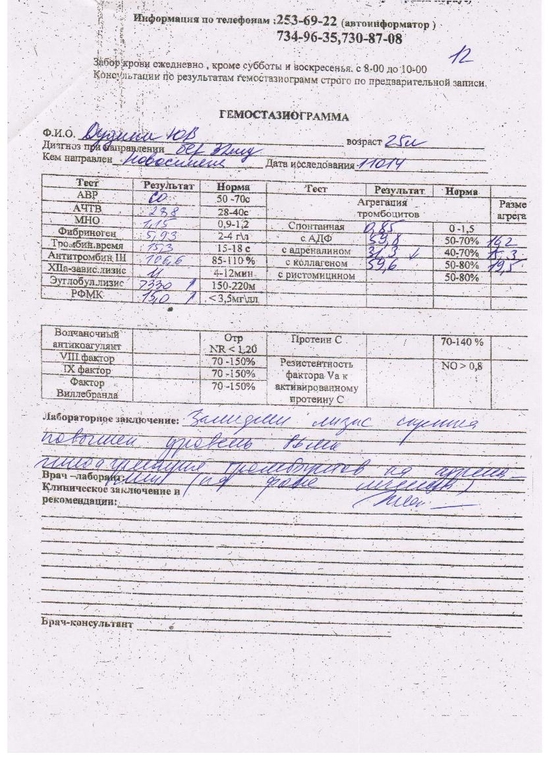 Информация по телефонам :253-69-22 (автоинформатор )
734-96-35,730-87-08
12
Забор крови ежедневно , кроме субботы и воскресенья. с 8-00 до 10-00
Консультации по результатам гемостазиограмм строго по предварительной записи.
ГЕМОСТАЗИОГРАММА
Ф.И.О. ЮВ возраст 25л
Диагноз при направлении бер
Кем направлен Дата исследования 11014
Тест Результат Норма Тест Результат Норма
АВР 60 50 -70с Агрегация тромбоцитов Разме агрега
АЧТВ 28,8 28-40с
МНО 1,15 0,9-1,2 Спонтанная 0,85 0 -1,5
Фибриноген 5,93 2-4 г\л с АДФ 50-70%
Тромбин.время 15,3 15-18 с с адреналином ↓ 40-70%
Антитромбин III 106,6 85-110 % с коллагеном 59,6 50-80% 19,5
XIIа-завис.лизис 11 4-12мин с ристомицином 50-80%
Эуглобул.лизис ↑ 150-220м
РФМК ↑ < 3,5мг\дл
Волчаночный антикоагулянт Отр NR < 1,20 Протеин С 70-140 %
VIII фактор 70 -150% Резистентность фактора Va к активированному протеину С NO > 0,8
IX фактор 70 -150%
Фактор Виллебранда 70 -150%
Лабораторное заключение: лизис сгустка
повышен уровень
гипоагрегация тромбоцитов на
Врач –лаборант: (на фоне
Клиническое заключение и
рекомендации:
Врач-консультант